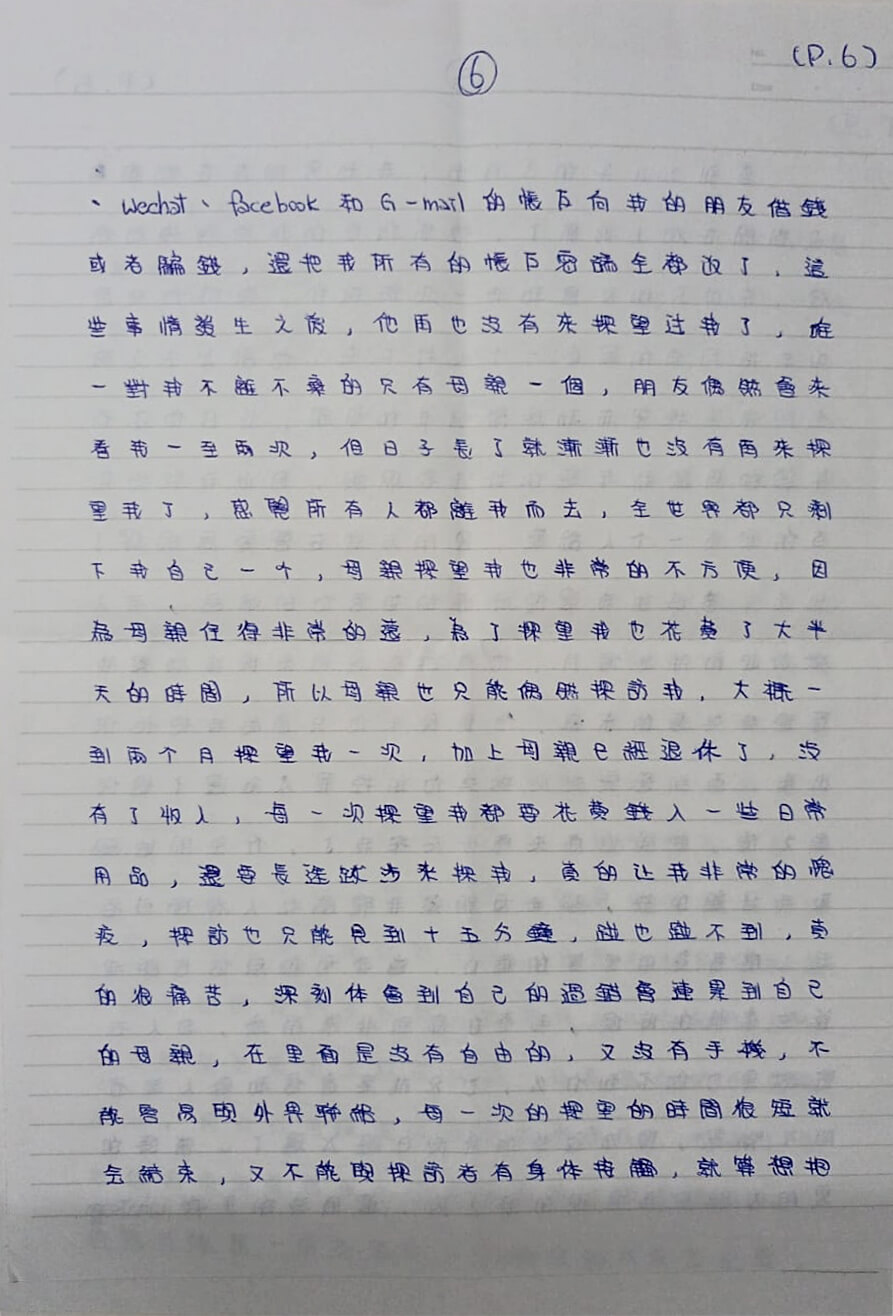 (P.6)
⑥
、wechat、facebook 和 G-mail 的帳戶向我的朋友借錢
或者騙錢，還把我所有的帳戶密碼全都改了，這
些事情發生之後，他再也沒有來探望过我了，唯
一對我不離不棄的只有母親一個，朋友偶然會来
看我一至兩次，但日子長了就漸漸也沒有再来探
望我了，感覺所有人都離我而去，全世界都只剩
下我自己一个，母親探望我也非常的不方便，因
為母親住得非常的遠，為了探望我也花費了大半
天的時間，所以母親也只能偶然探訪我，大概一
到兩个月探望我一次，加上母親已經退休了，沒
有了收入，每一次探望我都要花費錢入一些日常
用品，還要長途跋涉来探我，真的让我非常的愧
疚，探訪也只能見到十五分鐘，碰也碰不到，真
的很痛苦，深刻体會到自己的過錯會連累到自己
的母親，在里面是沒有自由的，又沒有手機，不
能容易與外界聯絡，每一次的探望的時間很短就
会結束，又不能與探訪者有身体接觸，就算想抱